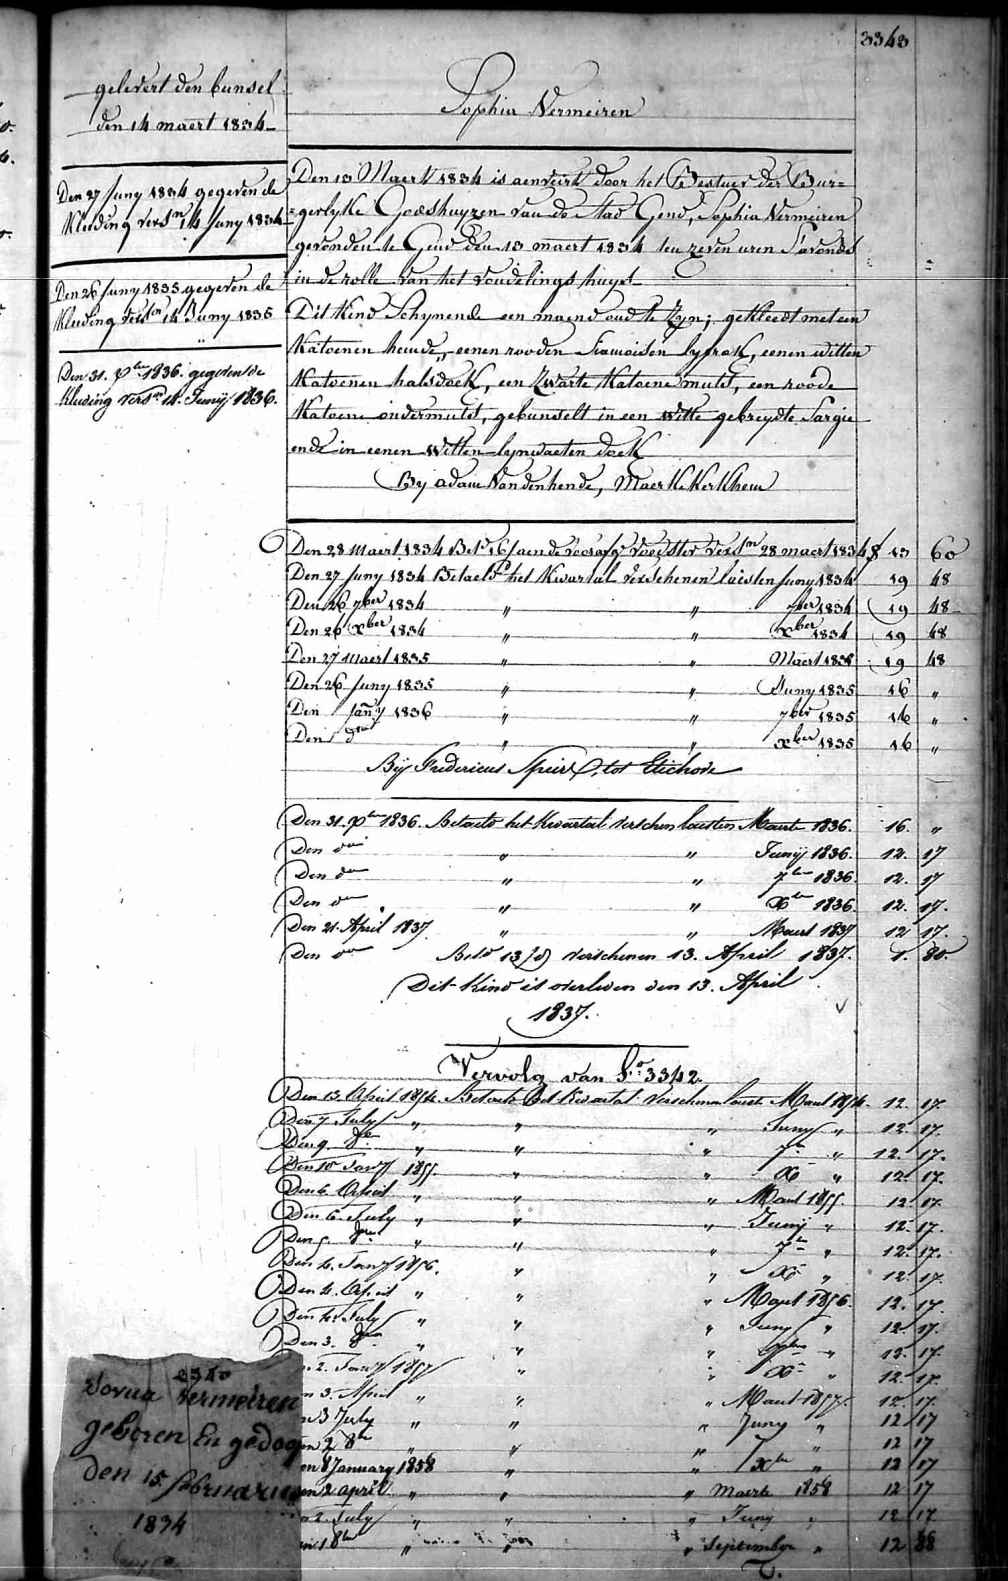 3343
gelevert den bunsel
den 14 maert 1834
Den 27 Juny 1834 gegeven de
Kleeding versn 14 Juny 1834
Den 26 Juny 1835 gegeven de
Kleeding versn 14 Juny 1835
Den 31. Xber 1836. gegeven de
kleeding versn 14. Junij 1836.
Sophia Vermeiren
Den 13 Maert 1834 is aenveirt door het Bestuer der Bur=
=gerlyke Godshuyzen van de stad Gend, Sophia Vermeiren
gevonden te Gend den 13 maert 1834 ten zeven uren Savonds
in de rolle van het vondelings huys
Dit Kind Schynende een maend oud te Zyn; gekleedt met een
Katoenen hemde, eenen rooden Siamoisen lyfrok, eenen witten
Katoenen halsdoek, een Zwarte Katoene muts, een roode
Katoene ondermuts, gebunselt in een witte gebreyde Sargie
ende in eenen witten lynwaeten doek
By adam Vandenhende, Maerkekerkhem
Den 28 Maert 1834 Betd 16 daen de voedster versn 28 maert 1834 f 13 60
Den 27 Juny 1834 Betaeld het Kwartal verschenen laesten Juny 1834 19 48
Den 26 7ber 1834 " " 7ber 1834 19 48
Den 26 Xber 1834 " " Xber 1834 19 48
Den 27 Maert 1835 " " Maert 1835 19 48
Den 26 Juny 1835 " " Juny 1835 16 "
Den Jany 1836 " " 7ber 1835 16 "
Den do " " Xber 1835 16 "
Bij Fredericus Speirs, tot Etichove
Den 31. Xber 1836. Betaeld het Kwartal verschen laesten Maerte 1836. 16. "
Den do " " Junij 1836. 12. 17
Den do " " 7ber 1836. 12. 17
Den do " " Xber 1836. 12. 17.
Den 21. April 1837. " " Maert 1837 12 17.
Den do Betd 13 verschenen 13. April 1837. 1. 80.
Dit Kind is overleden den 13. April
1837.
Vervolg van fo 3342.
Den 13. April 1854. Betaeld Het Kwartal verschenen laest Maert 1854. 12. 17.
Den 7 July " " " Juny " 12. 17.
Den 9 8er " " " 7er " 12. 17.
Den 10 Jany 1855. " " X " 12. 17.
Den 6. April " " " Maert 1855. 12. 17.
Den 6. July " " " Junij " 12. 17.
Den 5. 8er " " " 7er " 12. 17.
Den 4. Jany 1856. " " X " 12. 17.
Den 4. April " " " Maert 1856. 12. 17.
Den 4. July " " " Juny " 12 17.
Den 3. 8er " " " 7er " 12. 17.
n 2. Jany 1857 " " X " 12. 17.
n 3. April " " " Maert 1857. 12. 17.
n 3 July " " " Juny " 12 17
n 2 8er " " " 7 " 12 17
en 8 January 1858 " " Xbr " 12 17
en 2 april " " " Maerte 1858 12 17
n 2. July " " " Juny " 12 17
n 1 8ber " " " September " 12 88
Vermeiren
geboren En gedoop
den 15 februarius
1834